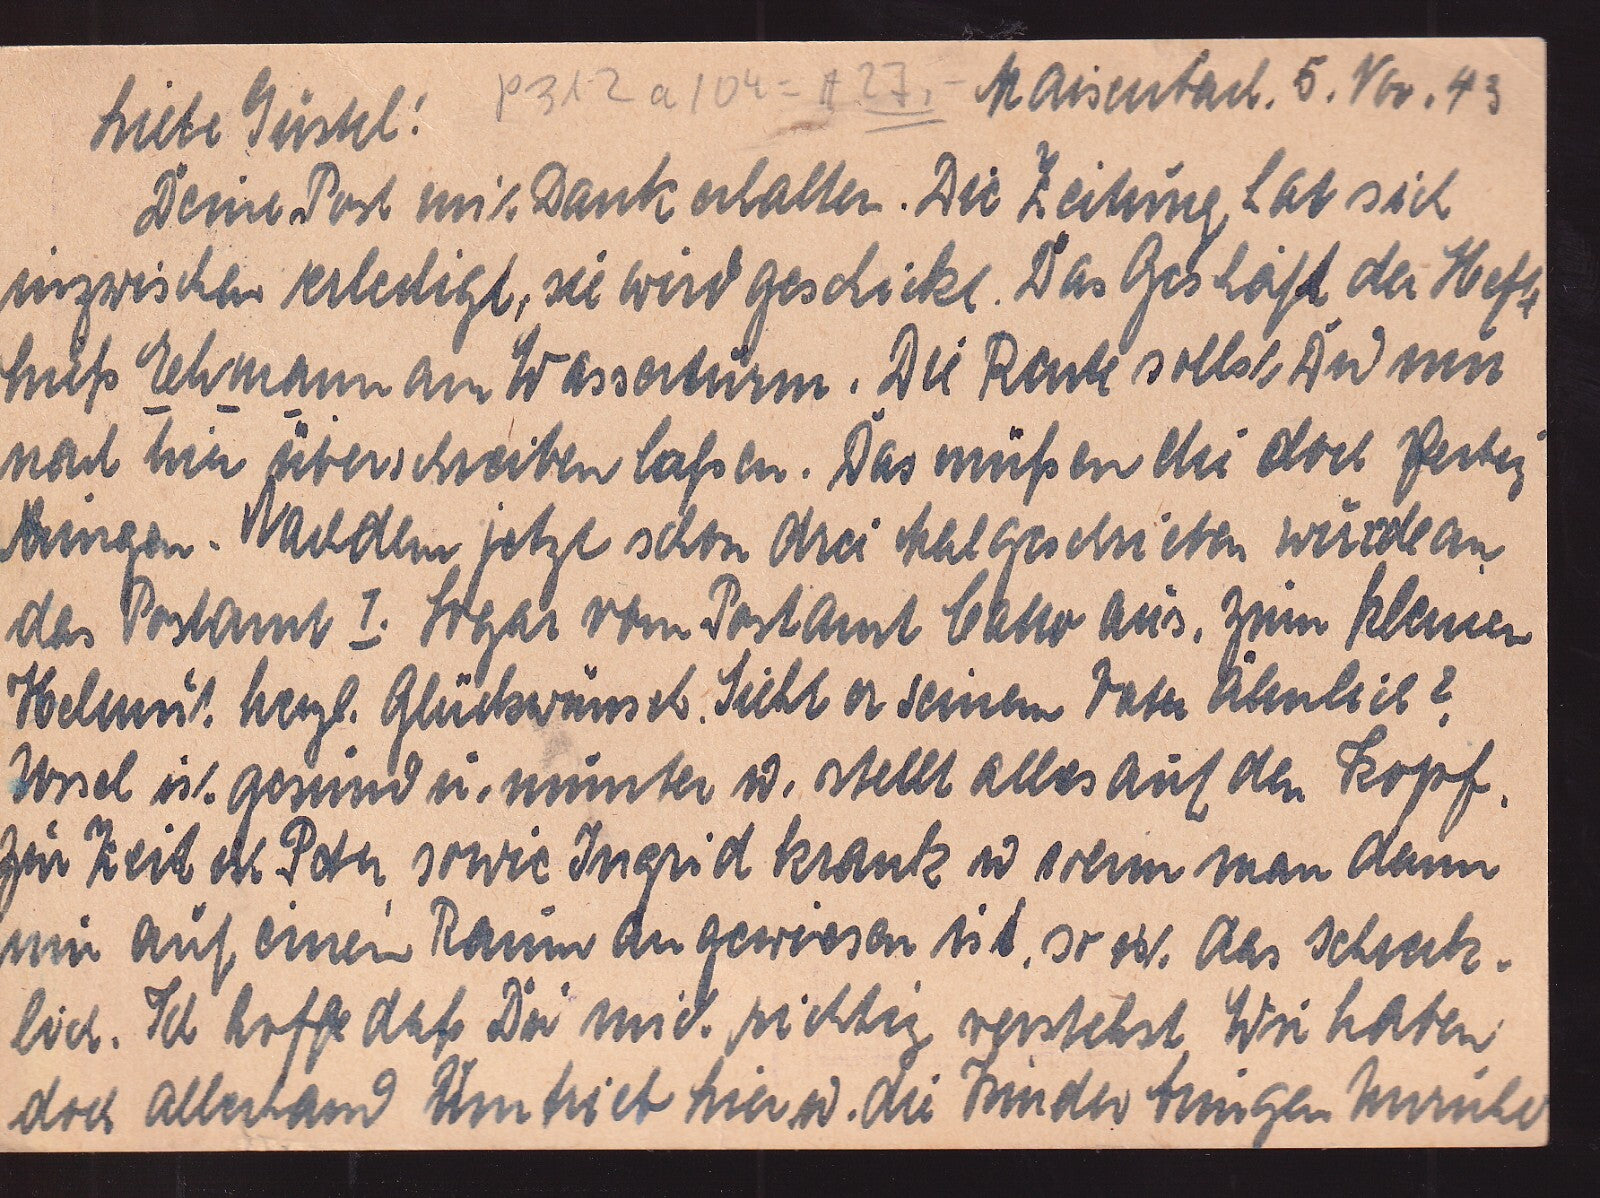 P 312 a / 04 = # 27,- Maisenbach. 5. Nov. 43
Liebe Gustel!
Deine Post mit Dank erhalten. Die Zeitung hat sich
inzwischen erledigt, sie wird geschickt. Das Geschäft der Hefte
hieß Ehmann am Wasserturm. Die Rente sollst Du nur
nach hier überschreiben laßen. Das müßen die doch fertig
bringen. Nachdem jetzt schon drei Mal geschrieben wurde an
das Postamt I. Sogar vom Postamt aus. Zum kleinen
Helmut herzl. Glückwunsch. Sieht er seinem Vater ähnlich?
Ursel ist gesund u. munter u. stellt alles auf den Kopf.
Zur Zeit ist Peter sowie Ingrid krank u wenn man dann
nur auf einen Raum angewiesen ist, so ist das schreck-
lich. Ich hoffe daß Du mich richtig verstehst. Wir haben
doch allerhand Umtrieb hier u. die Kinder bringen Unruhe